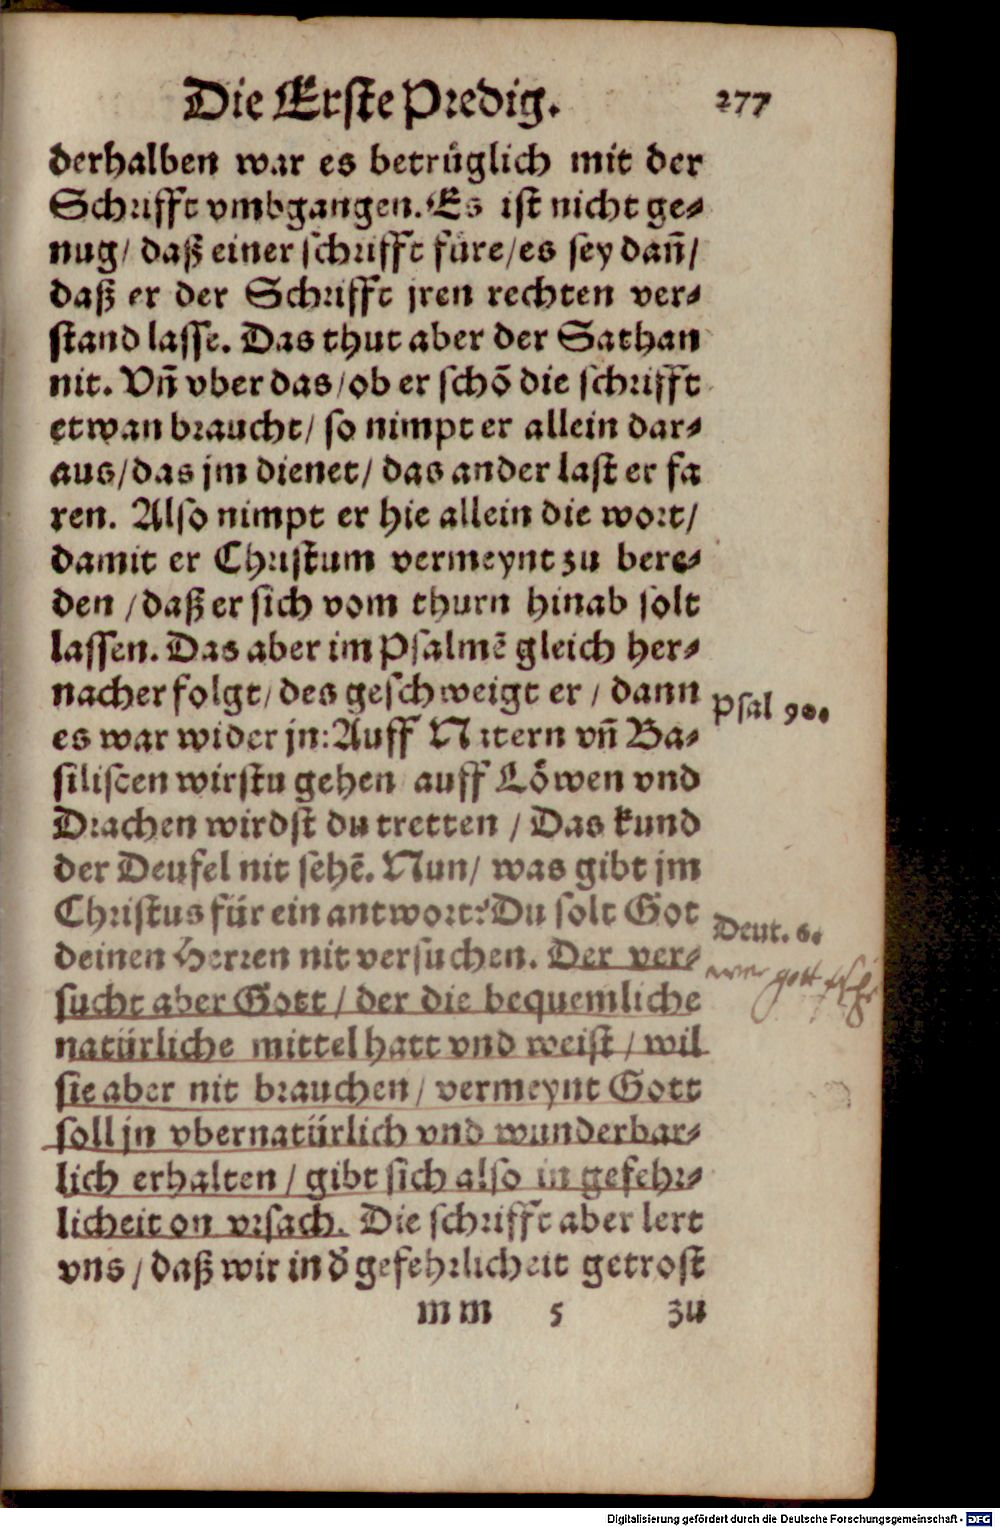 Die Erste Predig. 277
derhalben war es betrüglich mit der
Schrifft vmbgangen. Es ist nicht ge⸗
nug/ daß einer schrifft füre/es sey dañ/
daß er der Schrifft jren rechten ver⸗
stand lasse. Das thut aber der Sathan
nit. Vñ vber das/ob er schõ die schrifft
etwan braucht/ so nimpt er allein dar⸗
aus/das jm dienet/ das ander last er fa
ren. Also nimpt er hie allein die wort/
damit er Christum vermeynt zu bere⸗
den /daß er sich vom thurn hinab solt
lassen. Das aber im Psalmẽ gleich her⸗
nacher folgt/ des geschweigt er / dann
Psal 90.
es war wider jn: Auff Natern vñ Ba⸗
siliscen wirstu gehen auff Löwen vnd
Drachen wirdst du tretten / Das kund
der Deufel nit sehẽ. Nun/ was gibt jm
Christus für ein antwort? Du solt Got
Deut. 6.
deinen Herren nit versuchen. Der ver⸗
wer gott
sucht aber Gott / der die bequemliche
natürliche mittel hatt vnd weist / wil
sie aber nit brauchen / vermeynt Gott
soll jn vbernatürlich vnd wunderbar⸗
lich erhalten / gibt sich also in gefehr⸗
licheit on vrsach. Die schrifft aber lert
vns / daß wir in d̕ gefehrlicheit getrost
mm 5 zu
Digitalisierung gefördert durch die Deutsche Forschungsgemeinschaft - DFG